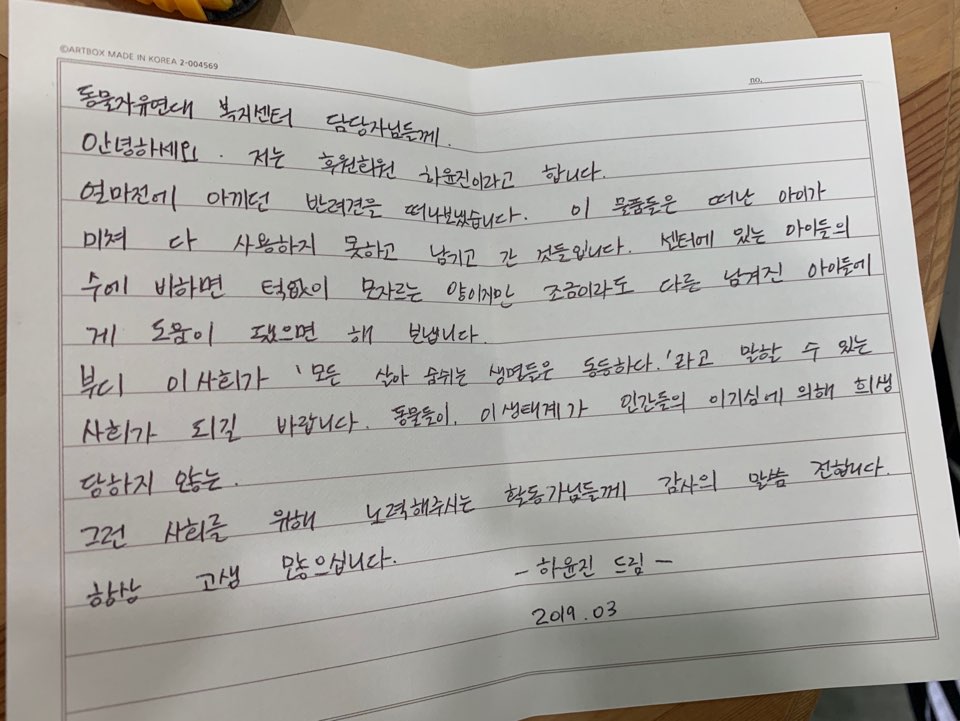 ©ARTBOX MADE IN KOREA 2-004569
no.
동물자유연대 복지센터 담당자님들께.
안녕하세요. 저는 후원회원 하윤진이라고 합니다.
얼마전에 아끼던 반려견을 떠나보냈습니다. 이 물품들은 떠난 아이가
미쳐 다 사용하지 못하고 남기고 간 것들입니다. 센터에 있는 아이들의
수에 비하면 턱없이 모자르는 양이지만 조금이라도 다른 남겨진 아이들에
게 도움이 됐으면 해 보냅니다.
부디 이 사회가 '모든 살아 숨쉬는 생명들은 동등하다.'라고 말할 수 있는
사회가 되길 바랍니다. 동물들이, 이 생태계가 인간들의 이기심에 의해 희생
당하지 않는.
그런 사회를 위해 노력해주시는 활동가님들께 감사의 말씀 전합니다.
항상 고생 많으십니다.
- 하윤진 드림 -
2019. 03